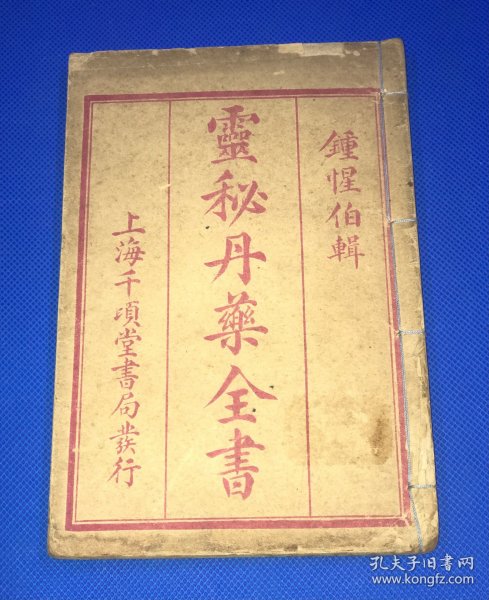 鍾惺伯輯
靈秘丹藥全書
上海千頃堂書局發行
孔夫子旧书网
www.kongfz.com